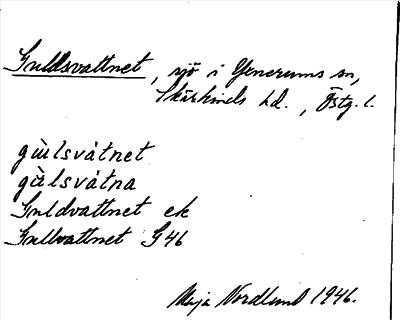 Guldsvattnet, sjö i Yxnerums sn,
Skärkinds hd., Östg. l.
gùlsvátnet
gùlsvátna
Guldvattnet ek
Gullvattnet G46
Maja Nordlund 1946.